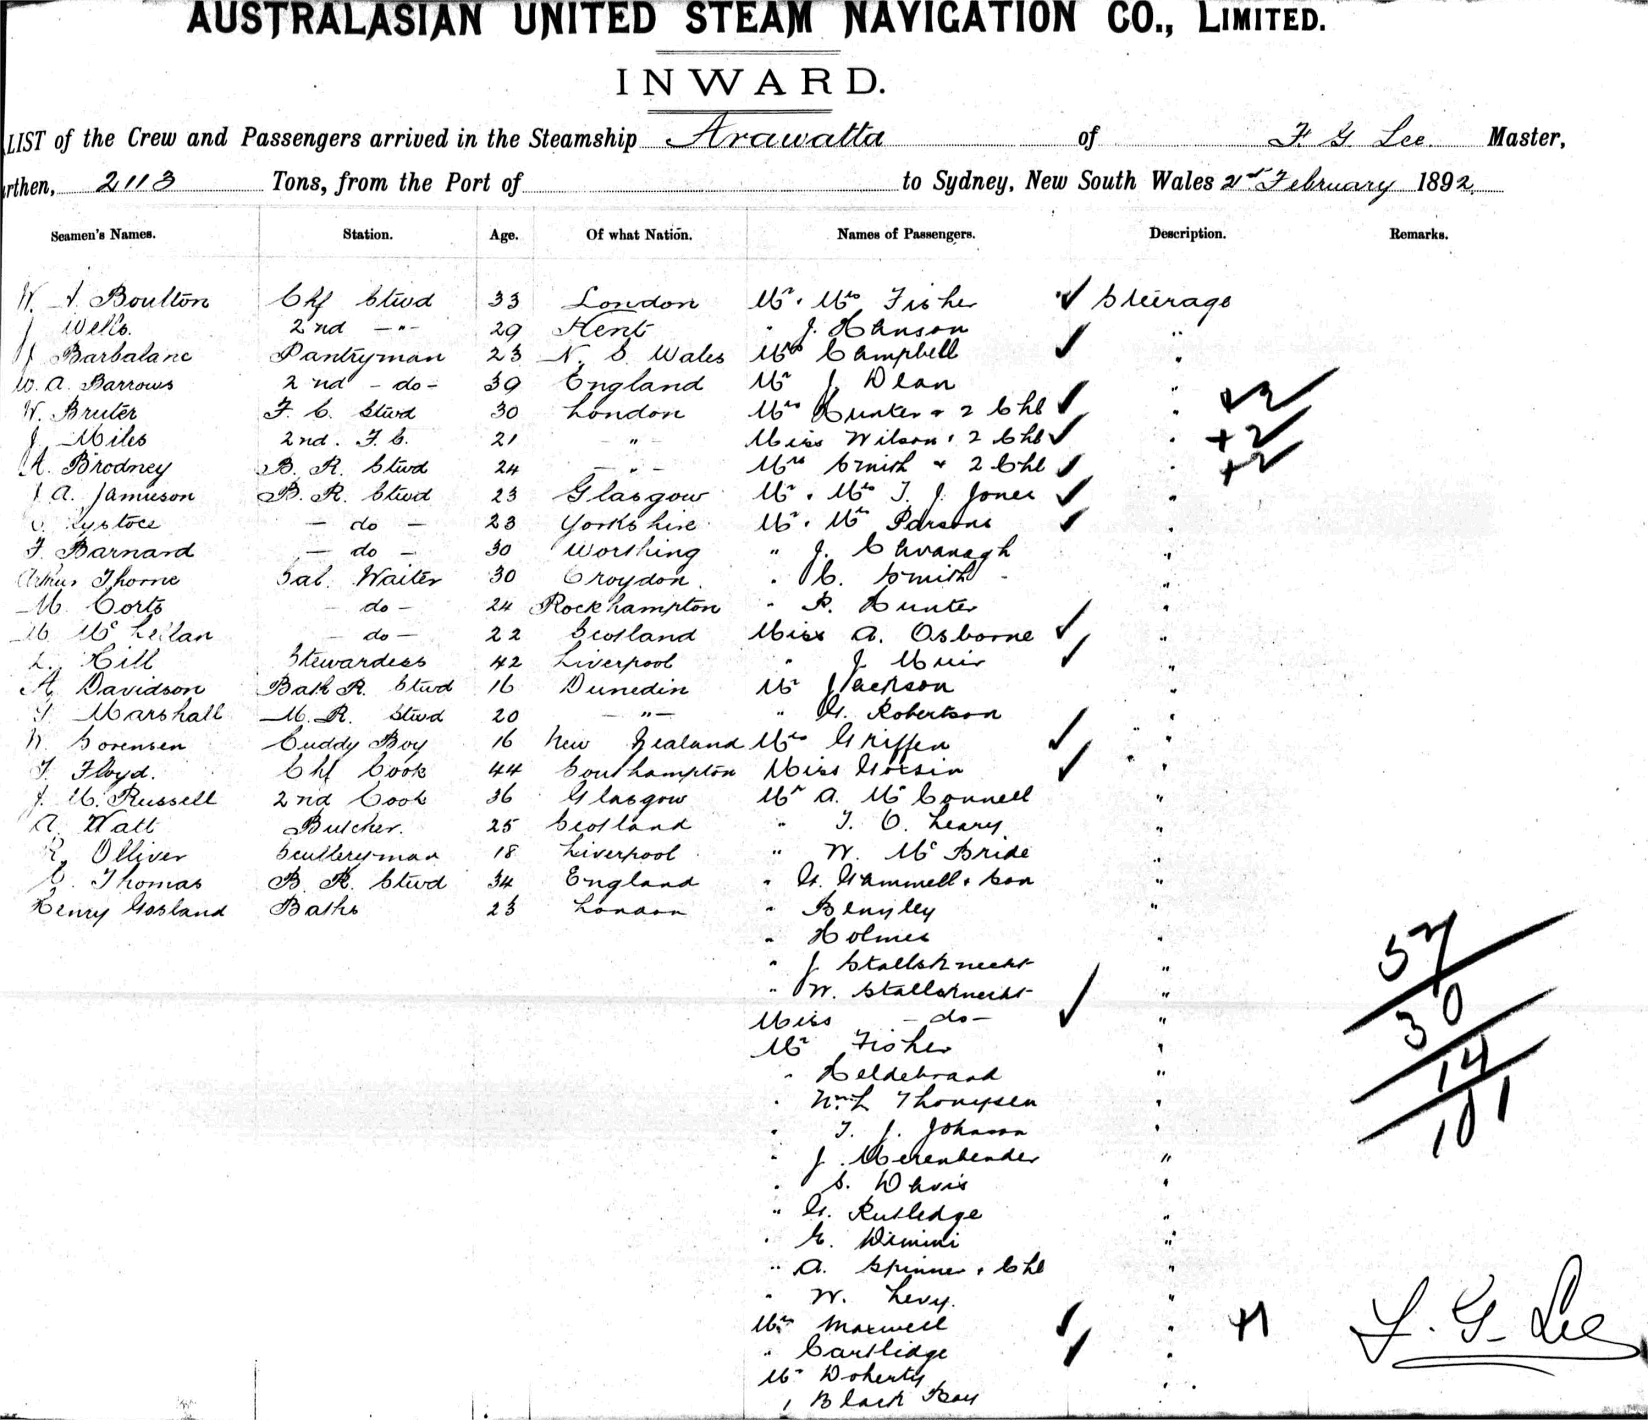 AUSTRALASIAN UNITED STEAM NAVIGATION CO., LIMITED.
INWARD.
LIST of the Crew and Passengers arrived in the Steamship Arawatta of F. G. Lee. Master,
rthen, 2113 Tons, from the Port of to Sydney, New South Wales 2nd February 1892.
Seamen's Names. Station. Age. Of what Nation. Names of Passengers. Description. Remarks.
Boulton Chf Stwd 33 London Mr. Mrs Fisher ✓ Steerage
J Wells. 2nd —"— 29 Kent " J. Hanson "
J Barbalanc Pantryman 23 N. S. Wales Mrs Campbell ✓ "
W. A. Barrows 2nd - do - 39 England Mr J. Dean "
W. Bruter F. C. Stwd 30 London Mrs Hunter + 2 Chl ✓ " +2
J. Miles 2nd. F. C. 21 " Miss Wilson + 2 Chl ✓ " +2
A. Brodney B. R. Stwd 24 — " — Mrs Smith + 2 Chl ✓ " +2
J. A. Jamieson B. R. Stwd 23 Glasgow Mr. Mrs T. J. Jones ✓ "
— do — 23 Yorkshire Mr. Mrs Parsons ✓ "
F. Barnard — do — 30 Worthing " J. Cavanagh "
Arthur Thorne Sal. Waiter 30 Croydon. " C. Smith "
M. Corts - do - 24 Rockhampton " R. Hunter "
M. McLellan - do - 22 Scotland Miss A. Osborne ✓ "
L. Hill Stewardess 42 Liverpool " J. Muir ✓ "
A. Davidson Bath R. Stwd 16 Dunedin Mr Jackson "
T. Marshall M. R. Stwd 20 — " — " G. Robertson "
N. Sorensen Cuddy Boy 16 New Zealand Mrs Griffen ✓ "
T. Floyd. Chf Cook 44 Southampton Miss ✓ "
J. M. Russell 2nd Cook 36 Glasgow Mr A. McConnell "
A. Watt Butcher. 25 Scotland " T. O. Leary "
R. Olliver Sculleryman 18 Liverpool " W. McBride "
C. Thomas B. R. Stwd 34 England " G. Gammell + Son "
Henry Gosland Baths 23 London " "
" Holmes "
" J. Stallsknecht "
" W. Stallsknecht "
Miss — do — ✓ "
Mr Fisher "
" Heldebrand "
" "
" T. J. "
" J. "
" S. Davis "
" G. Rutledge "
" "
" A. Spinner + Chl "
" W. Levy. "
Mrs Maxwell ✓ " +1
" Cartlidge ✓ "
Mr Doherty "
" Black Boy
57
30
14
101
F. G. Lee